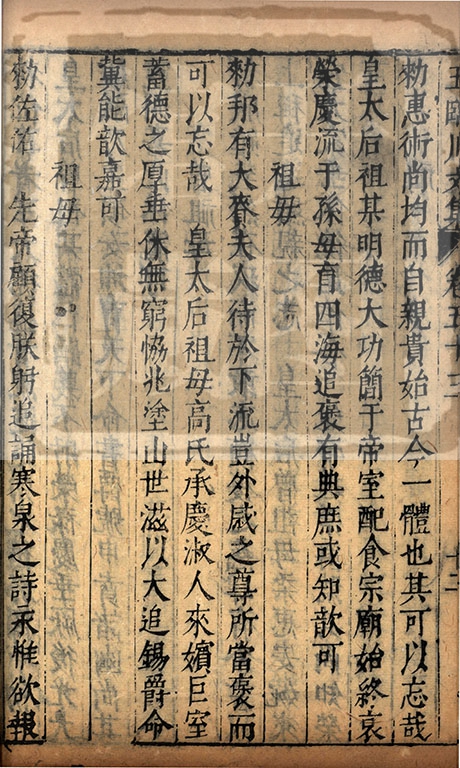 王臨川文集 卷五十三 十二
勑惠術尚均而自親貴始古今一體也其可以忘哉
皇太后祖某明德大功簡于帝室配食宗廟始終哀
榮慶流于孫母育四海追褒有典庶或知歆可
祖母
勑邦有大賚夫人待於下流豈外戚之尊所當褒而
可以忘哉 皇太后祖母高氏承慶淑人來嬪巨室
蓄德之厚垂休無窮恊兆塗山世滋以大追錫爵命
冀能歆嘉可
祖母
勑佐佑 先帝顧復朕躬追誦寒泉之詩永惟欲報